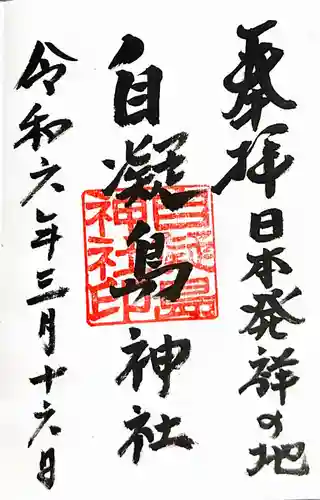 奉拝 日本発祥の地
自凝島神社
令和六年三月十六日
自凝島
神社印